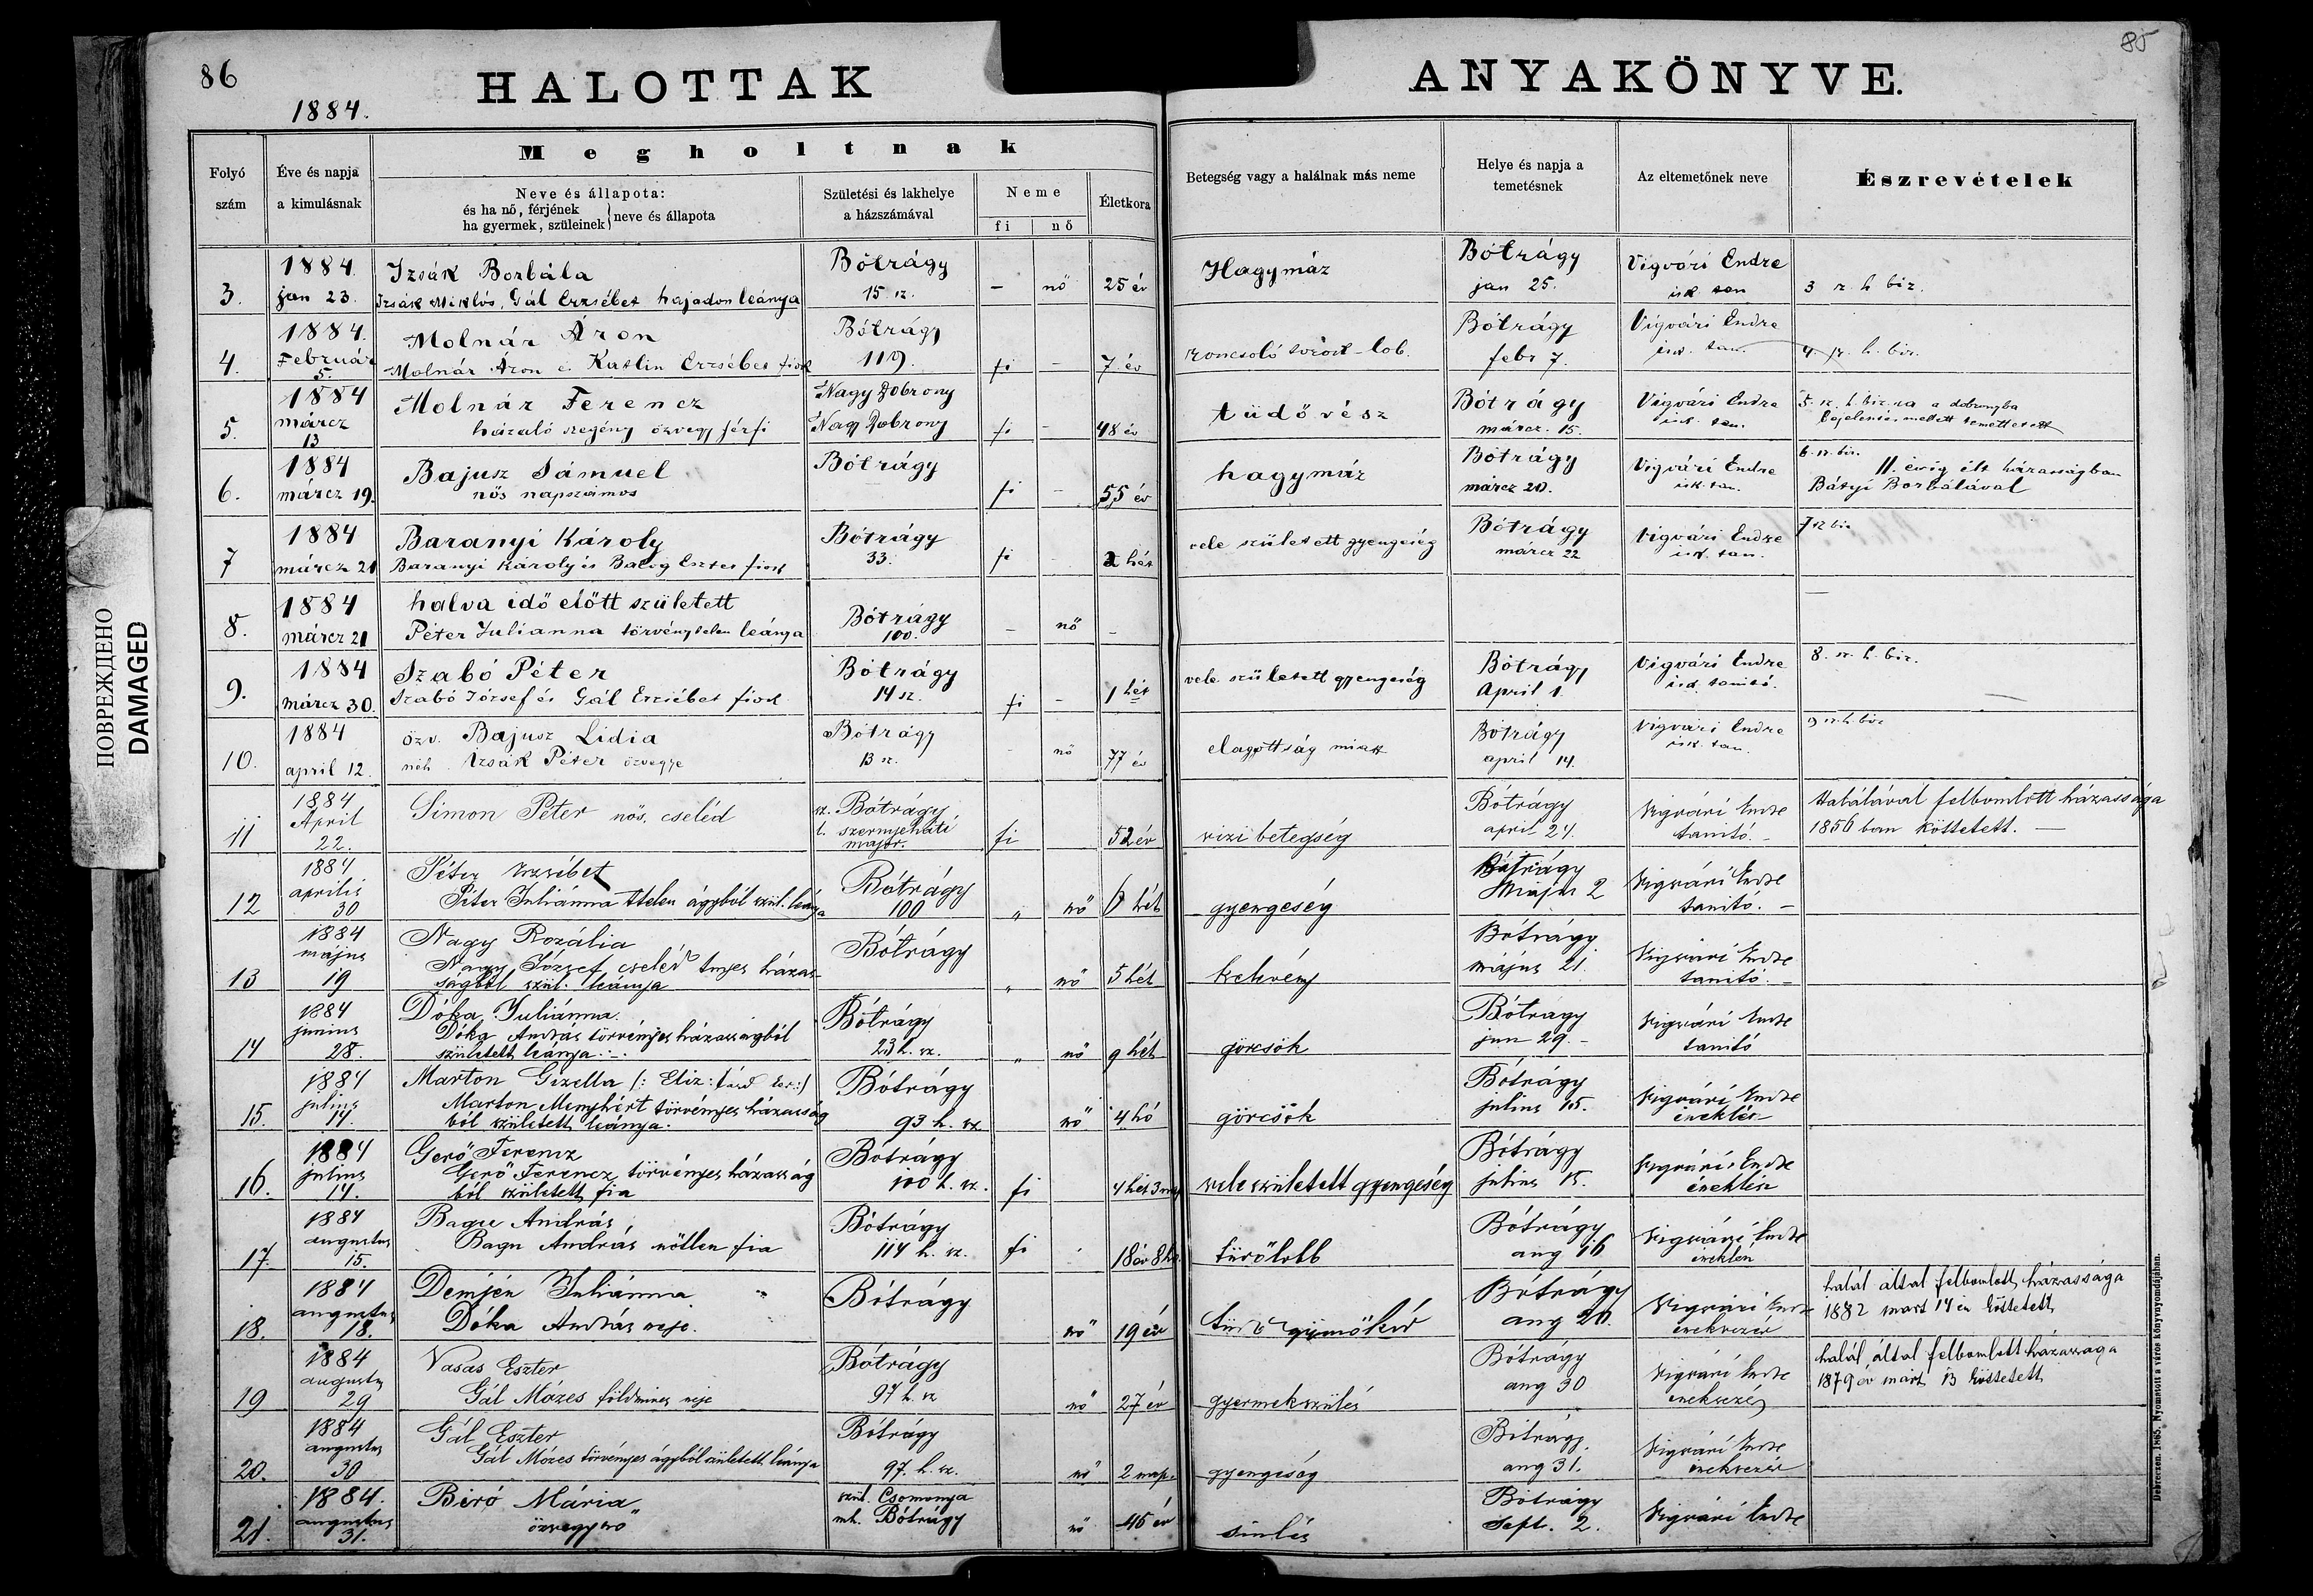 86
85
HALOTTAK ANYAKÖNYVE.
1884.
Folyó szám
Éve és napja a kimulásnak
Megholtnak
Neve és állapota:
és ha nő, férjének
ha gyermek, szüleinek } neve és állapota
Születési és lakhelye a házszámával
Neme
fi nő
Életkora
Betegség vagy a halálnak más neme
Helye és napja a temetésnek
Az eltemetőnek neve
Észrevételek
3. 1884. jan 23. Izsák Borbála Bótrágy 15 sz. – nő 25 év Hagymáz Bótrágy jan 25. Vigvári Endre isk. tan 3 sz. h. biz.
Izsák Miklós, Gál Erzsébet hajadon leánya
4. 1884. Február 5. Molnár Áron Bótrágy 119. fi – 7 év roncsoló torok-lob. Bótrágy febr 7. Vigvári Endre isk. tan. 4. sz. h. biz.
Molnár Áron é. Katlin Erzsébet fiok
5. 1884 márcz 13 Molnár Ferencz Nagy Dobrony Nagy Dobrony fi – 48 év tüdővész Bótrágy márcz. 15. Vigvári Endre isk. tan. 5. sz. h. biz. a dobronyba
házaló szegény özvegy férfi bejelentés mellett temettetett
6. 1884 márcz 19. Bajusz Sámuel Bótrágy fi – 55 év hagymáz Bótrágy márcz 20. Vigvári Endre isk. tan. 6. sz. biz. 11. évig élt házasságban
nős napszámos Bátyi Borbálával
7 1884 márcz 21 Baranyi Károly Bótrágy 33. fi 2 hét vele született gyengeség Bótrágy márcz 22 Vigvári Endre isk. tan. 7 sz biz
Baranyi Károly és Balog Eszter fiok
8. 1884 márcz 21 halva idő előtt született Bótrágy 100. – nő –
Péter Julianna törvénytelen leánya
9. 1884 márcz 30. Szabó Péter Bótrágy 14 sz. fi – 1 hét vele született gyengeség Bótrágy April 1. Vigvári Endre isk. tanitó. 8. sz. h. biz.
Szabó József és Gál Erzsébet fiok
10. 1884 april 12. özv. Bajusz Lidia Bótrágy 13 sz. nő 77 év elagottság miatt Bótrágy april 14. Vigvári Endre isk. tan. 9 sz. h. biz
néh. Izsák Péter özvegye
11 1884 April 22. Simon Péter nős, cseléd sz. Bótrágy l. szernyeháti major. fi 52 év vizi betegség Bótrágy april 24. Vigvári Endre tanitó. – Halálával felbomlott házassága
1856 ban köttetett. –
12 1884 aprilis 30 Péter Erzsébet Bótrágy 100 „ nő hét gyengeség Bótrágy Május 2 Vigvári Endre tanitó. –
Péter Juliánna ttelen ágyból szül. leánya
13 1884 május 19 Nagy Rozália Bótrágy „ nő 5 hét kelvény Bótrágy május 21. Vigvári Endre tanitó. –
Nagy József cseléd tnyes házas-
ságból szül. leánya
14 1884 junius 28. Dóka Juliánna. Bótrágy 23 h. sz. „ nő 9 hét görcsök Bótrágy jun 29. – Vigvári Endre tanitó
Dóka András törvényes házasságból
született leánya. –
15. 1884 julius 14. Marton Gizella Bótrágy 93 h. sz. nő 4 hó görcsök Bótrágy julius 15. Vigvári Endre énekllér
Marton Menyhért törvényes házasság
ból született leánya.
16. 1884 julius 14. Gerő Ferencz Bótrágy 100 h. sz. fi 4 hét 3 nap vele született gyengeség Bótrágy julius 15. Vigvári Endre
Gerő Ferencz törvényes házasság
ból született fia
17. 1884 augustus 15. Bagu András Bótrágy 114 h. sz. fi 18 év 8 hó Bótrágy aug 16 Vigvári Endre
Bagu András nőtlen fia
18. 1884 augustus 18. Demjén Juliánna Bótrágy nő 19 év tüdő gümőkór Bótrágy aug 20. Vigvári Endre énekvezér halál által felbomlott házassága
Dóka András neje. 1882 mart 14 én köttetett
19 1884 augustus 29 Vasas Eszter Bótrágy 97 h. sz nő 27 év gyermekszülés Bótrágy aug 30 Vigvári Endre énekvezér halál által felbomlott házassaga
Gál Mózes földmives neje 1879 év mart 13 köttetett
20. 1884 augustus 30 Gál Eszter Bótrágy 97. h. sz. nő 2 nap. gyengeség Bótrágy. aug 31. Vigvári Endre énekvezér
Gál Mózes törvényes ágyból született leánya
21. 1884. augustus 31. Biró Mária szül. Csomonya mh. Bótrágy nő 45 év Bótrágy Sept. 2. Vigvári Endre
özvegy nő
ПОВРЕЖДЕНО
DAMAGED
Debreczen. 1865. Nyomtatott a város könyvnyomdájában.